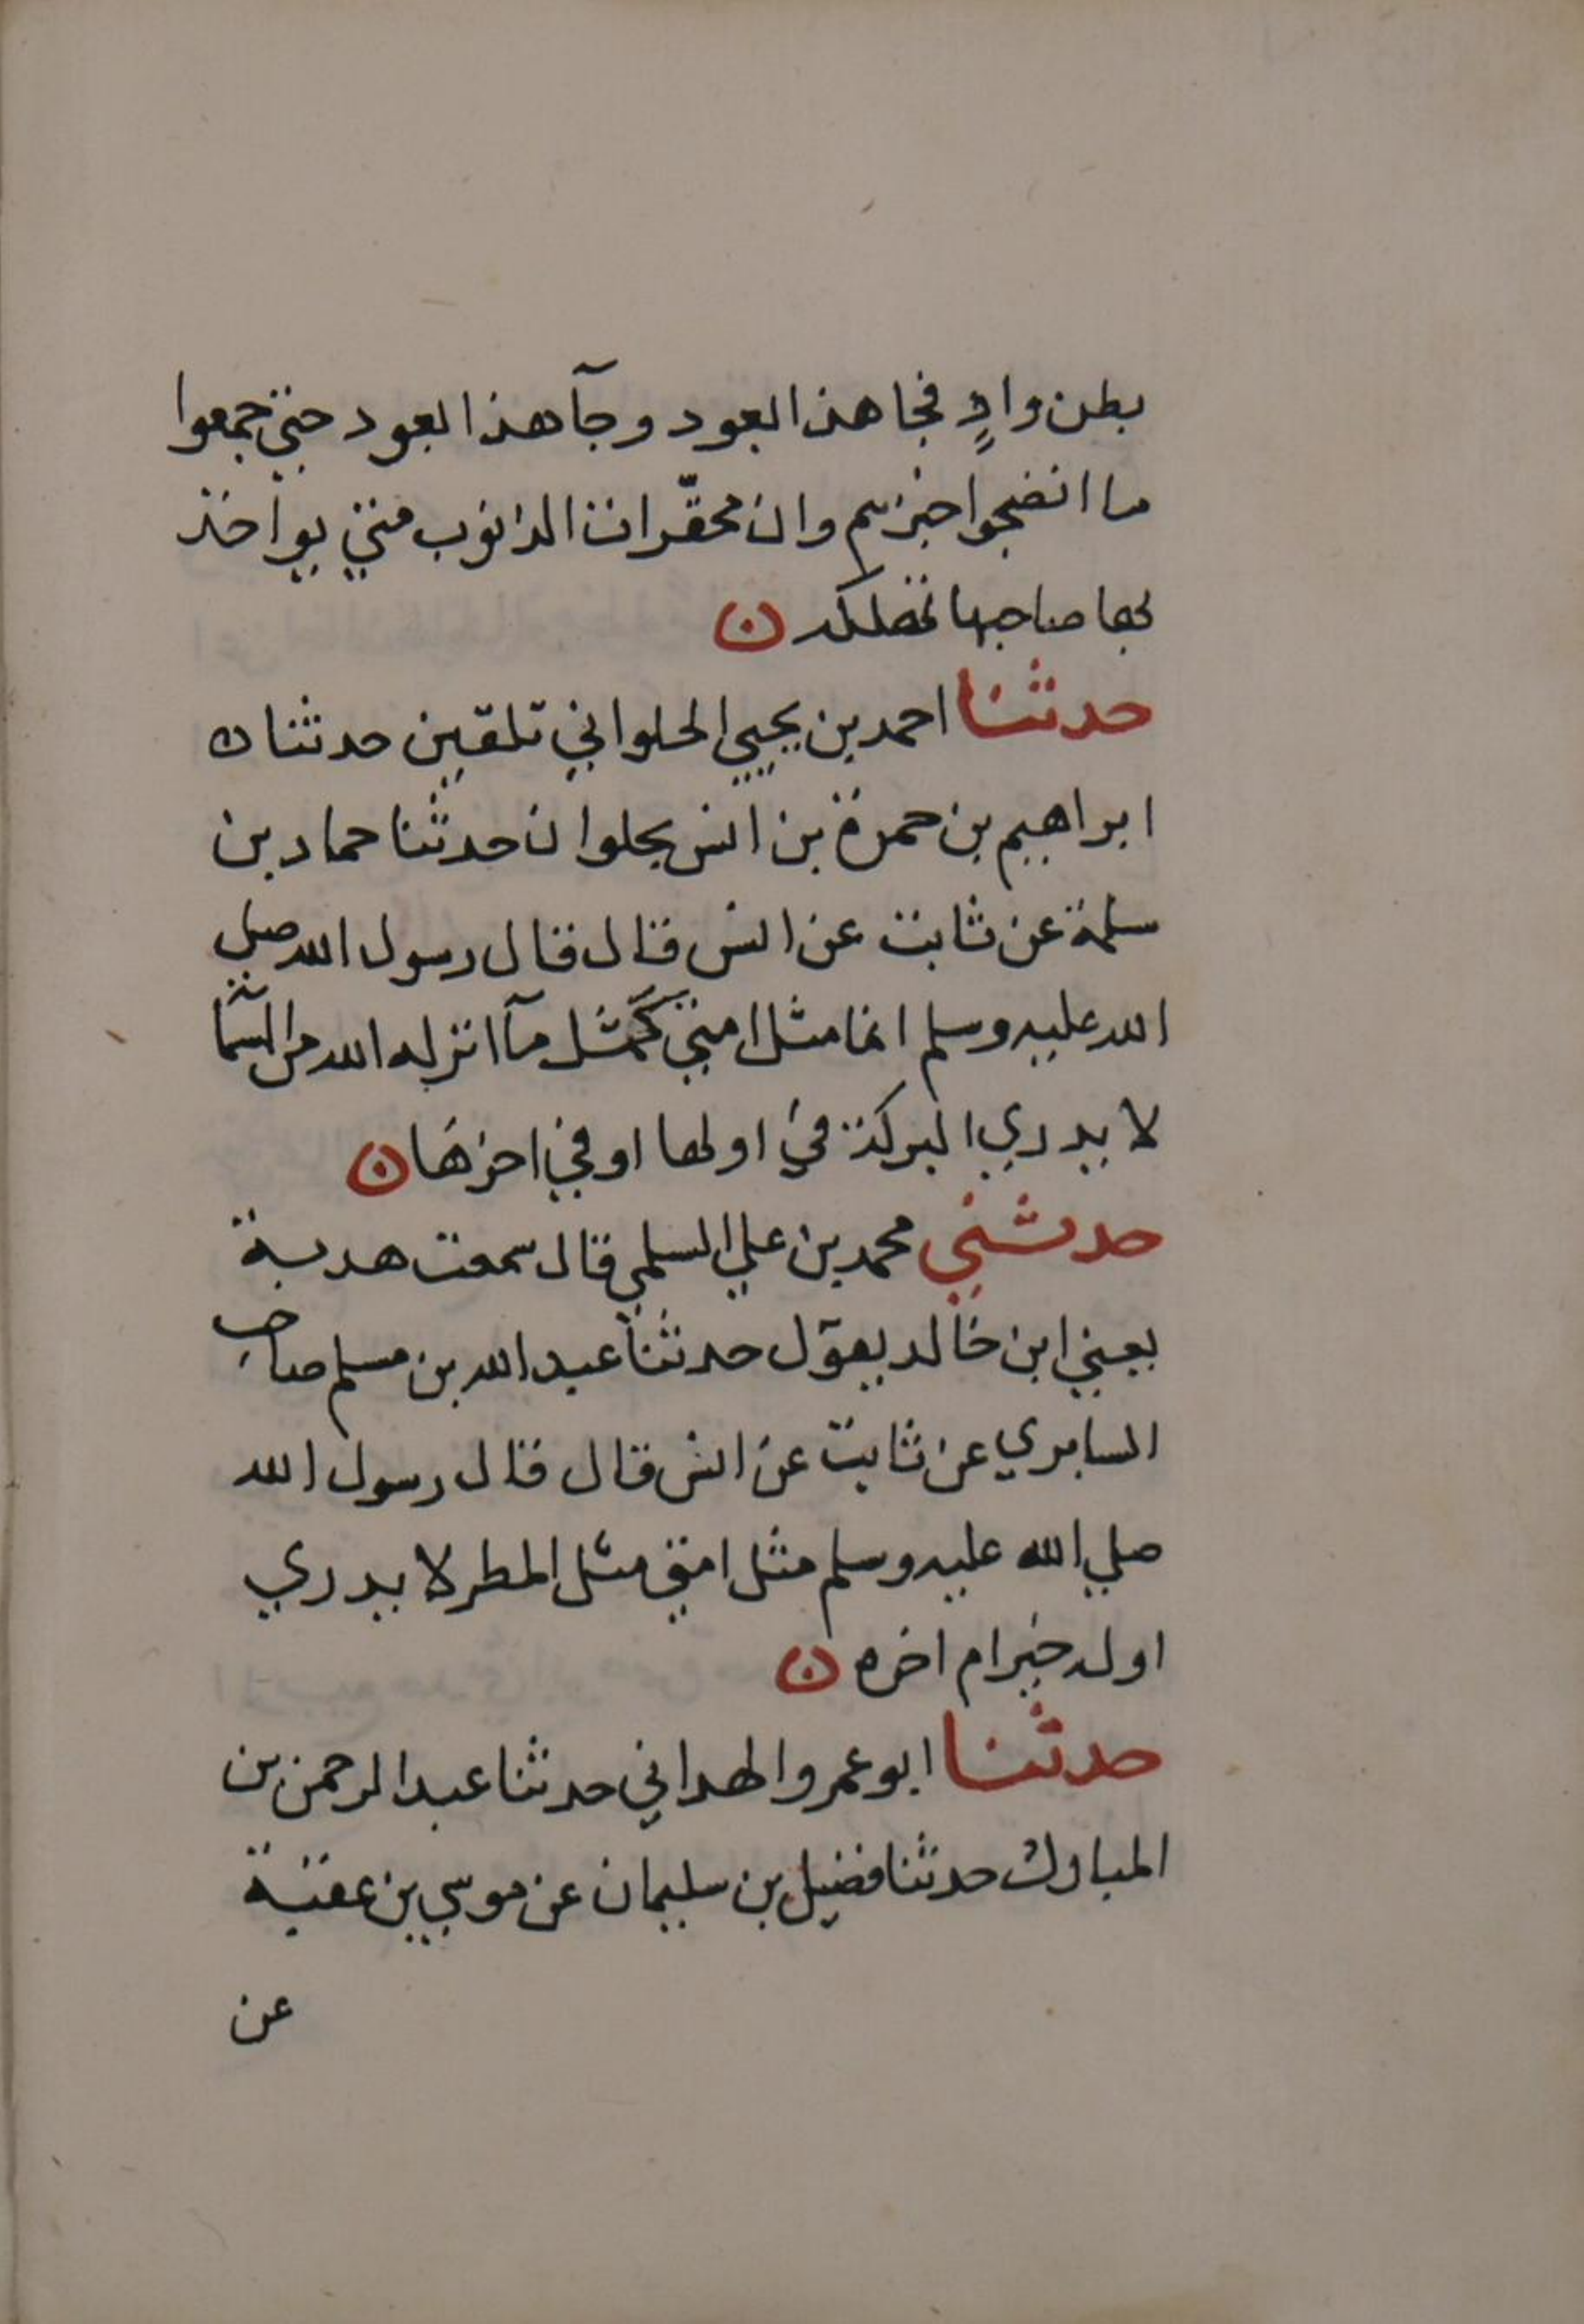 بطن وادٍ فجا هذا بعود وجآ هذا بعود حتي جمعوا
ما انضجوا خبزهم وان محقّرات الذنوب متي يواخذ
بها صاحبها تهلكه ن
حدثنا احمد بن يحيي الحلواني تلقين حدثنا ن
ابراهيم بن حمزة بن انس بحلوان حدثنا حماد بن
سلمة عن ثابت عن انس قال قال رسول الله صلي
الله عليه وسلم انما مثل امتي كمثل مآ انزله الله من السمآ
لا يدري البركة في اولها او في اخرها ن
حدثني محمد بن علي السلمي قال سمعت هدبة
يعني ابن خالد يقول حدثنا عبد الله بن مسلم صاحب
السابري عن ثابت عن انس قال قال رسول الله
صلي الله عليه وسلم مثل امتي مثل المطر لا يدري
اوله خير ام اخره ن
حدثنا ابو عمرو الهداني حدثنا عبد الرحمن بن
المبارك حدثنا فضيل بن سليمان عن موسي بن عقبة
عن